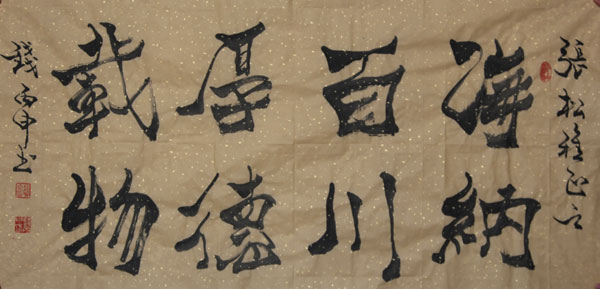 張松雅正之
海納
百川
厚德
載物
錢丙申書